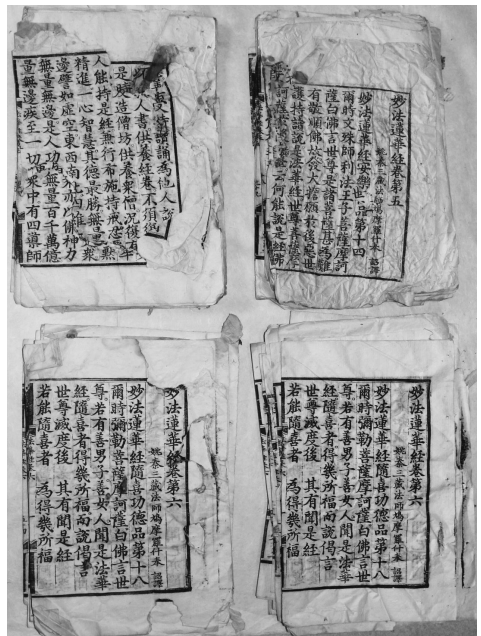 妙法蓮華經卷第五
姚秦三藏法師鳩摩羅什奉 詔譯
妙法蓮華經安樂行品第十四
爾時文殊師利法王子菩薩摩訶
薩白佛言世尊是諸菩薩甚爲難
有敬順佛故發大誓願於後惡世
護持讀說是法華經世尊菩薩摩
訶薩於後惡世云何能說是經佛
讀誦爲他人說
人書供養經卷不須復
造僧坊供養衆僧況復有
人能持是經兼行布施持戒
精進一心智慧其德最勝無量
邊譬如虛空東西南北 亦以佛神力
無量無邊是人功 無量百千萬億
量無邊疾至一切 衆中有四導師
妙法蓮華經卷第六
姚秦三藏法師鳩摩羅什奉 詔譯
妙法蓮華經隨喜功德品第十八
爾時彌勒菩薩摩訶薩白佛言世
尊若有善男子善女人聞是法華
經隨喜者得幾所福而說偈言
世尊滅度後 其有聞是經
若能隨喜者 爲得幾所福
妙法蓮華經卷第六
姚秦三藏法師鳩摩羅什奉 詔譯
妙法蓮華經隨喜功德品第十八
爾時彌勒菩薩摩訶薩白佛言世
尊若有善男子善女人聞是法華
經隨喜者得幾所福而說偈言
世尊滅度後 其有聞是經
若能隨喜者 爲得幾所福